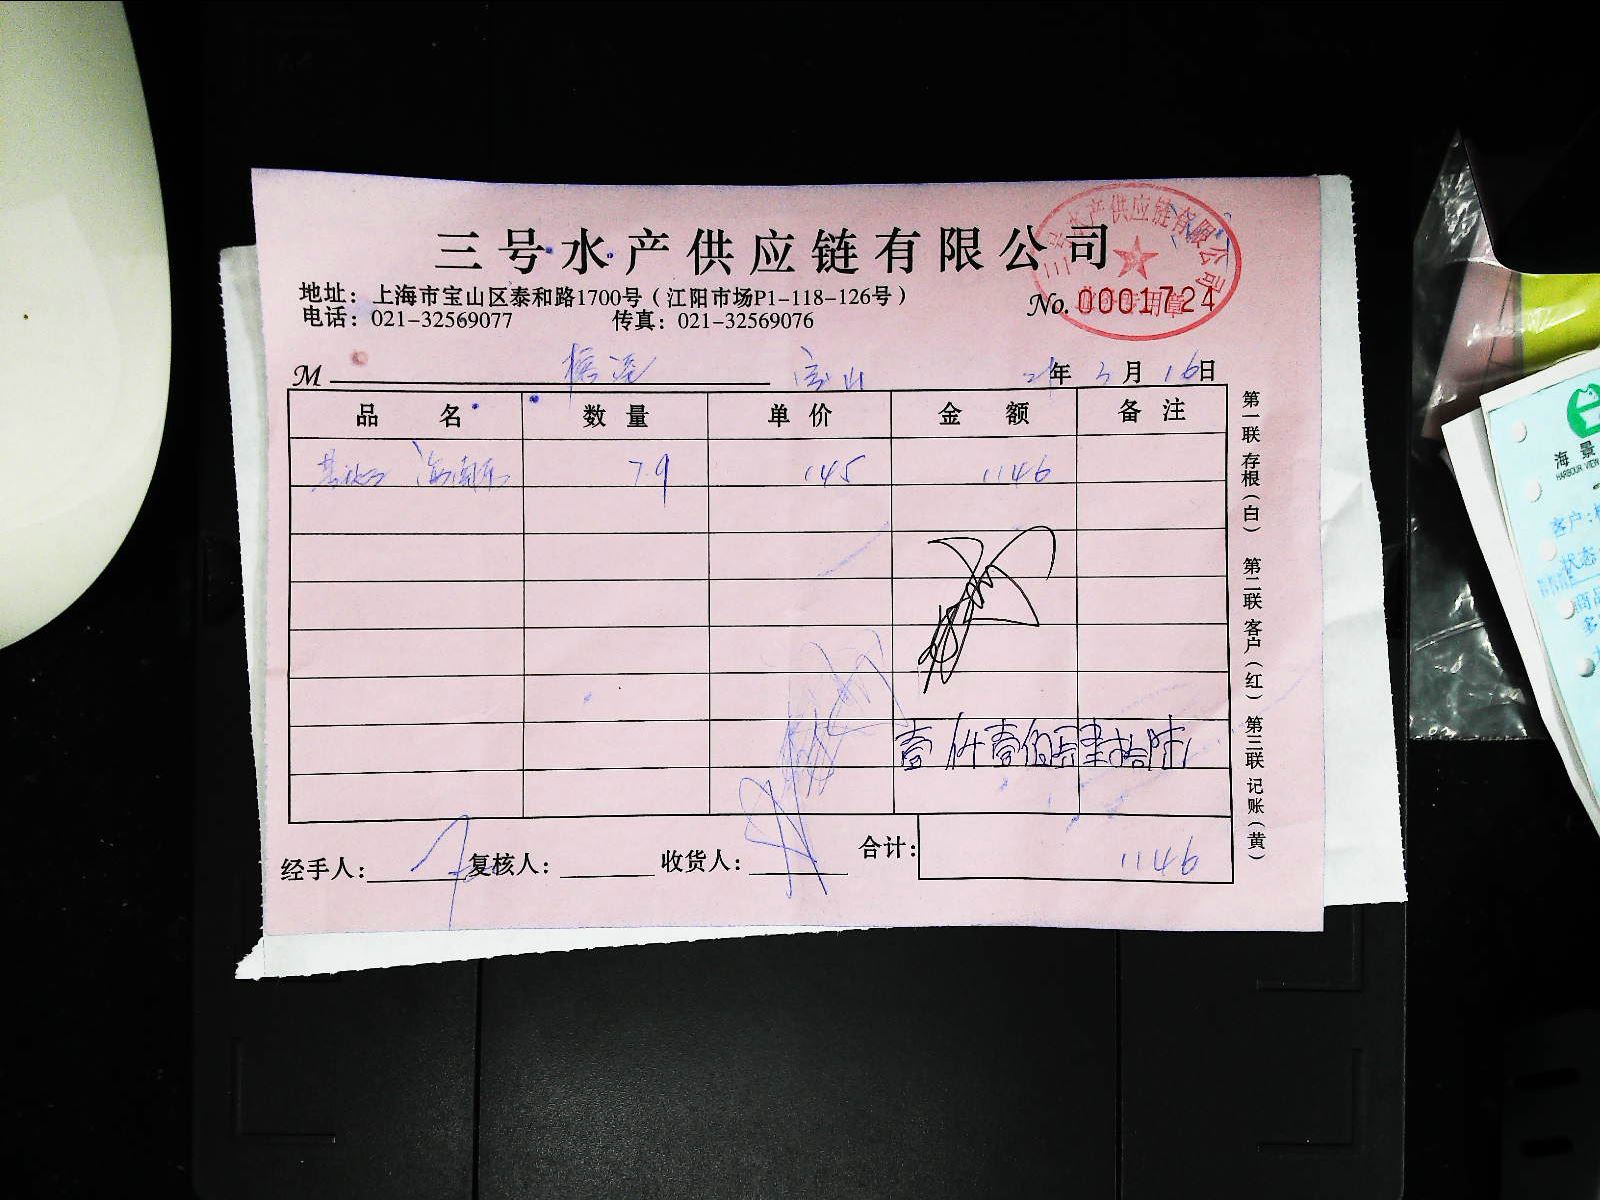 三号水产供应链有限公司
地址：上海市宝山区泰和路1700号（江阳市场P1-118-126号）
电话：021-32569077 传真：021-32569076
No. 0001724
号水产供应链有限公司
专用章
M 宝山 21年3月16日
品名 数量 单价 金额 备注
79 145 1146
壹仟壹佰零肆拾陆
经手人： 复核人： 收货人： 合计： 1146
第一联 存根（白） 第二联 客户（红） 第三联 记账（黄）
海景
HARBOUR VIEW
客户：
状态
商品